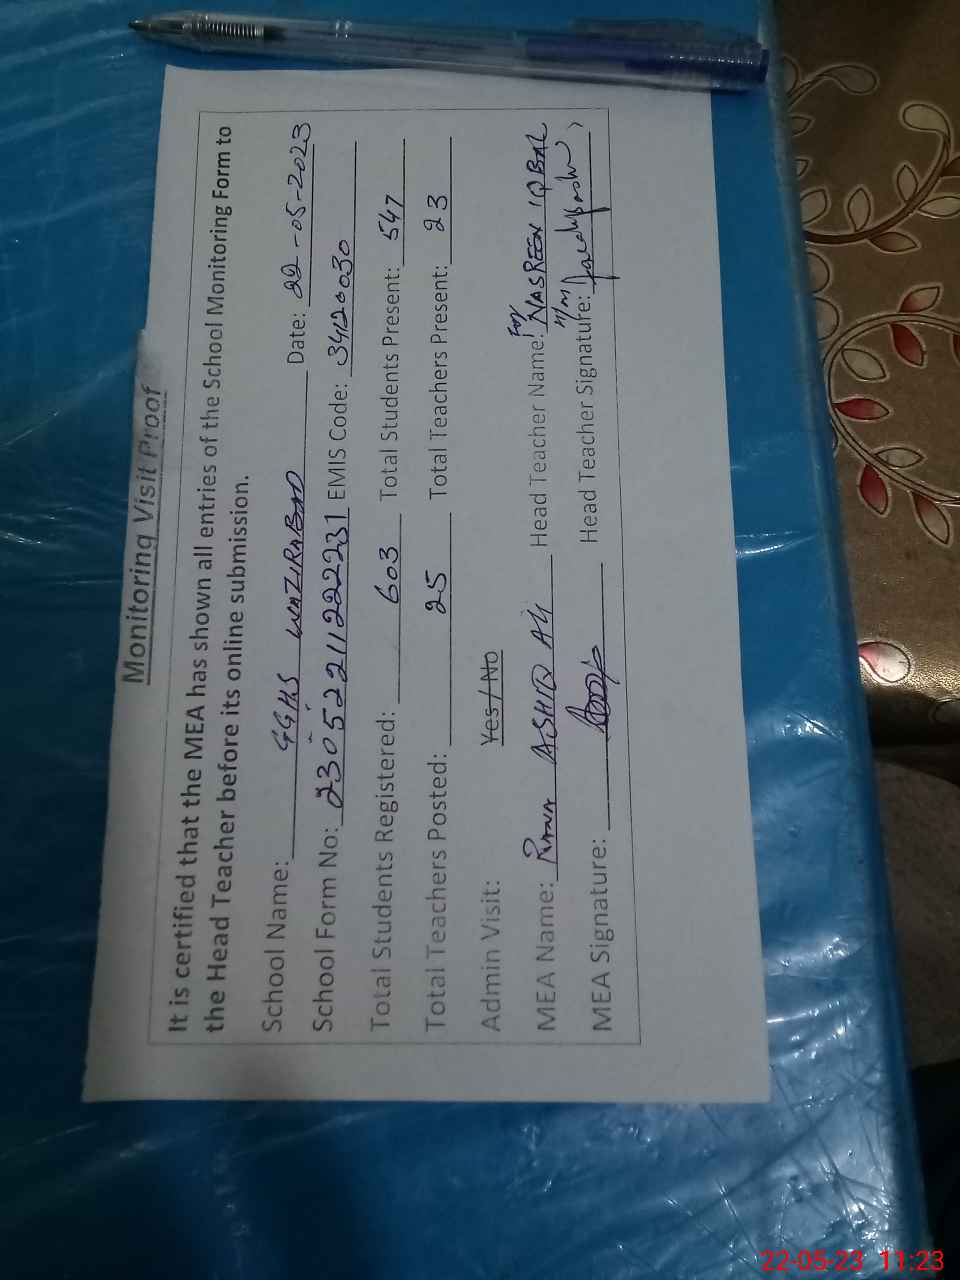 Monitoring Visit Proof
It is certified that the MEA has shown all entries of the School Monitoring Form to
the Head Teacher before its online submission.
School Name: GGHS WAZIRABAD Date: 22-05-2023
School Form No: 23052211222231 EMIS Code: 34120030
Total Students Registered: 603 Total Students Present: 547
Total Teachers Posted: 25 Total Teachers Present: 23
Admin Visit: Yes / No
MEA Name: RANA ASHIQ ALI Head Teacher Name: For NASREEN IQBAL
MEA Signature: Head Teacher Signature:
22-05-23 11:23